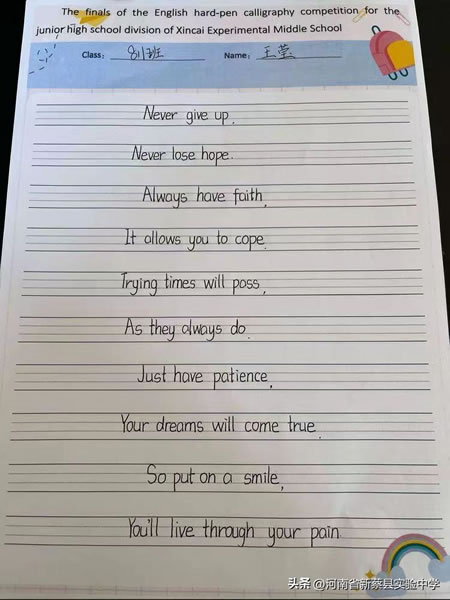 The finals of the English hard-pen calligraphy competition for the
junior high school division of Xincai Experimental Middle School
Class: 811班 Name: 王莹
Never give up.
Never lose hope.
Always have faith.
It allows you to cope.
Trying times will pass,
As they always do.
Just have patience,
Your dreams will come true.
So put on a smile,
You'll live through your pain
头条 @河南省新蔡县实验中学